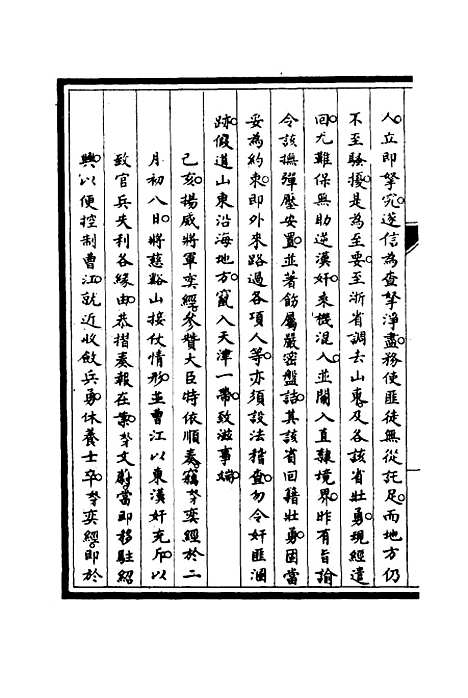 人立即拏究遂信為查拏淨盡務使匪徒無從託足而地方仍
不至騷擾是為至要至浙省調去山東及各該省壯勇現經遣
回尤難保無助逆漢奸乘機混入並闌入直隸境界昨有旨諭
令該撫彈壓安置並著飭屬嚴密盤詰其該省回籍壯勇固當
妥為約束即外來路過各項人等亦須設法稽查勿令奸匪溷
跡假道山東沿海地方竄入天津一帶致滋事端
己亥揚威將軍奕經參贊大臣特依順奏竊拏奕經於二
月初八日將慈谿山接仗情形並曹江以東漢奸充斥以
致官兵失利各緣由恭摺奏報在案拏文蔚當即移駐紹
興以便控制曹江就近收斂兵勇休養士卒拏奕經即於